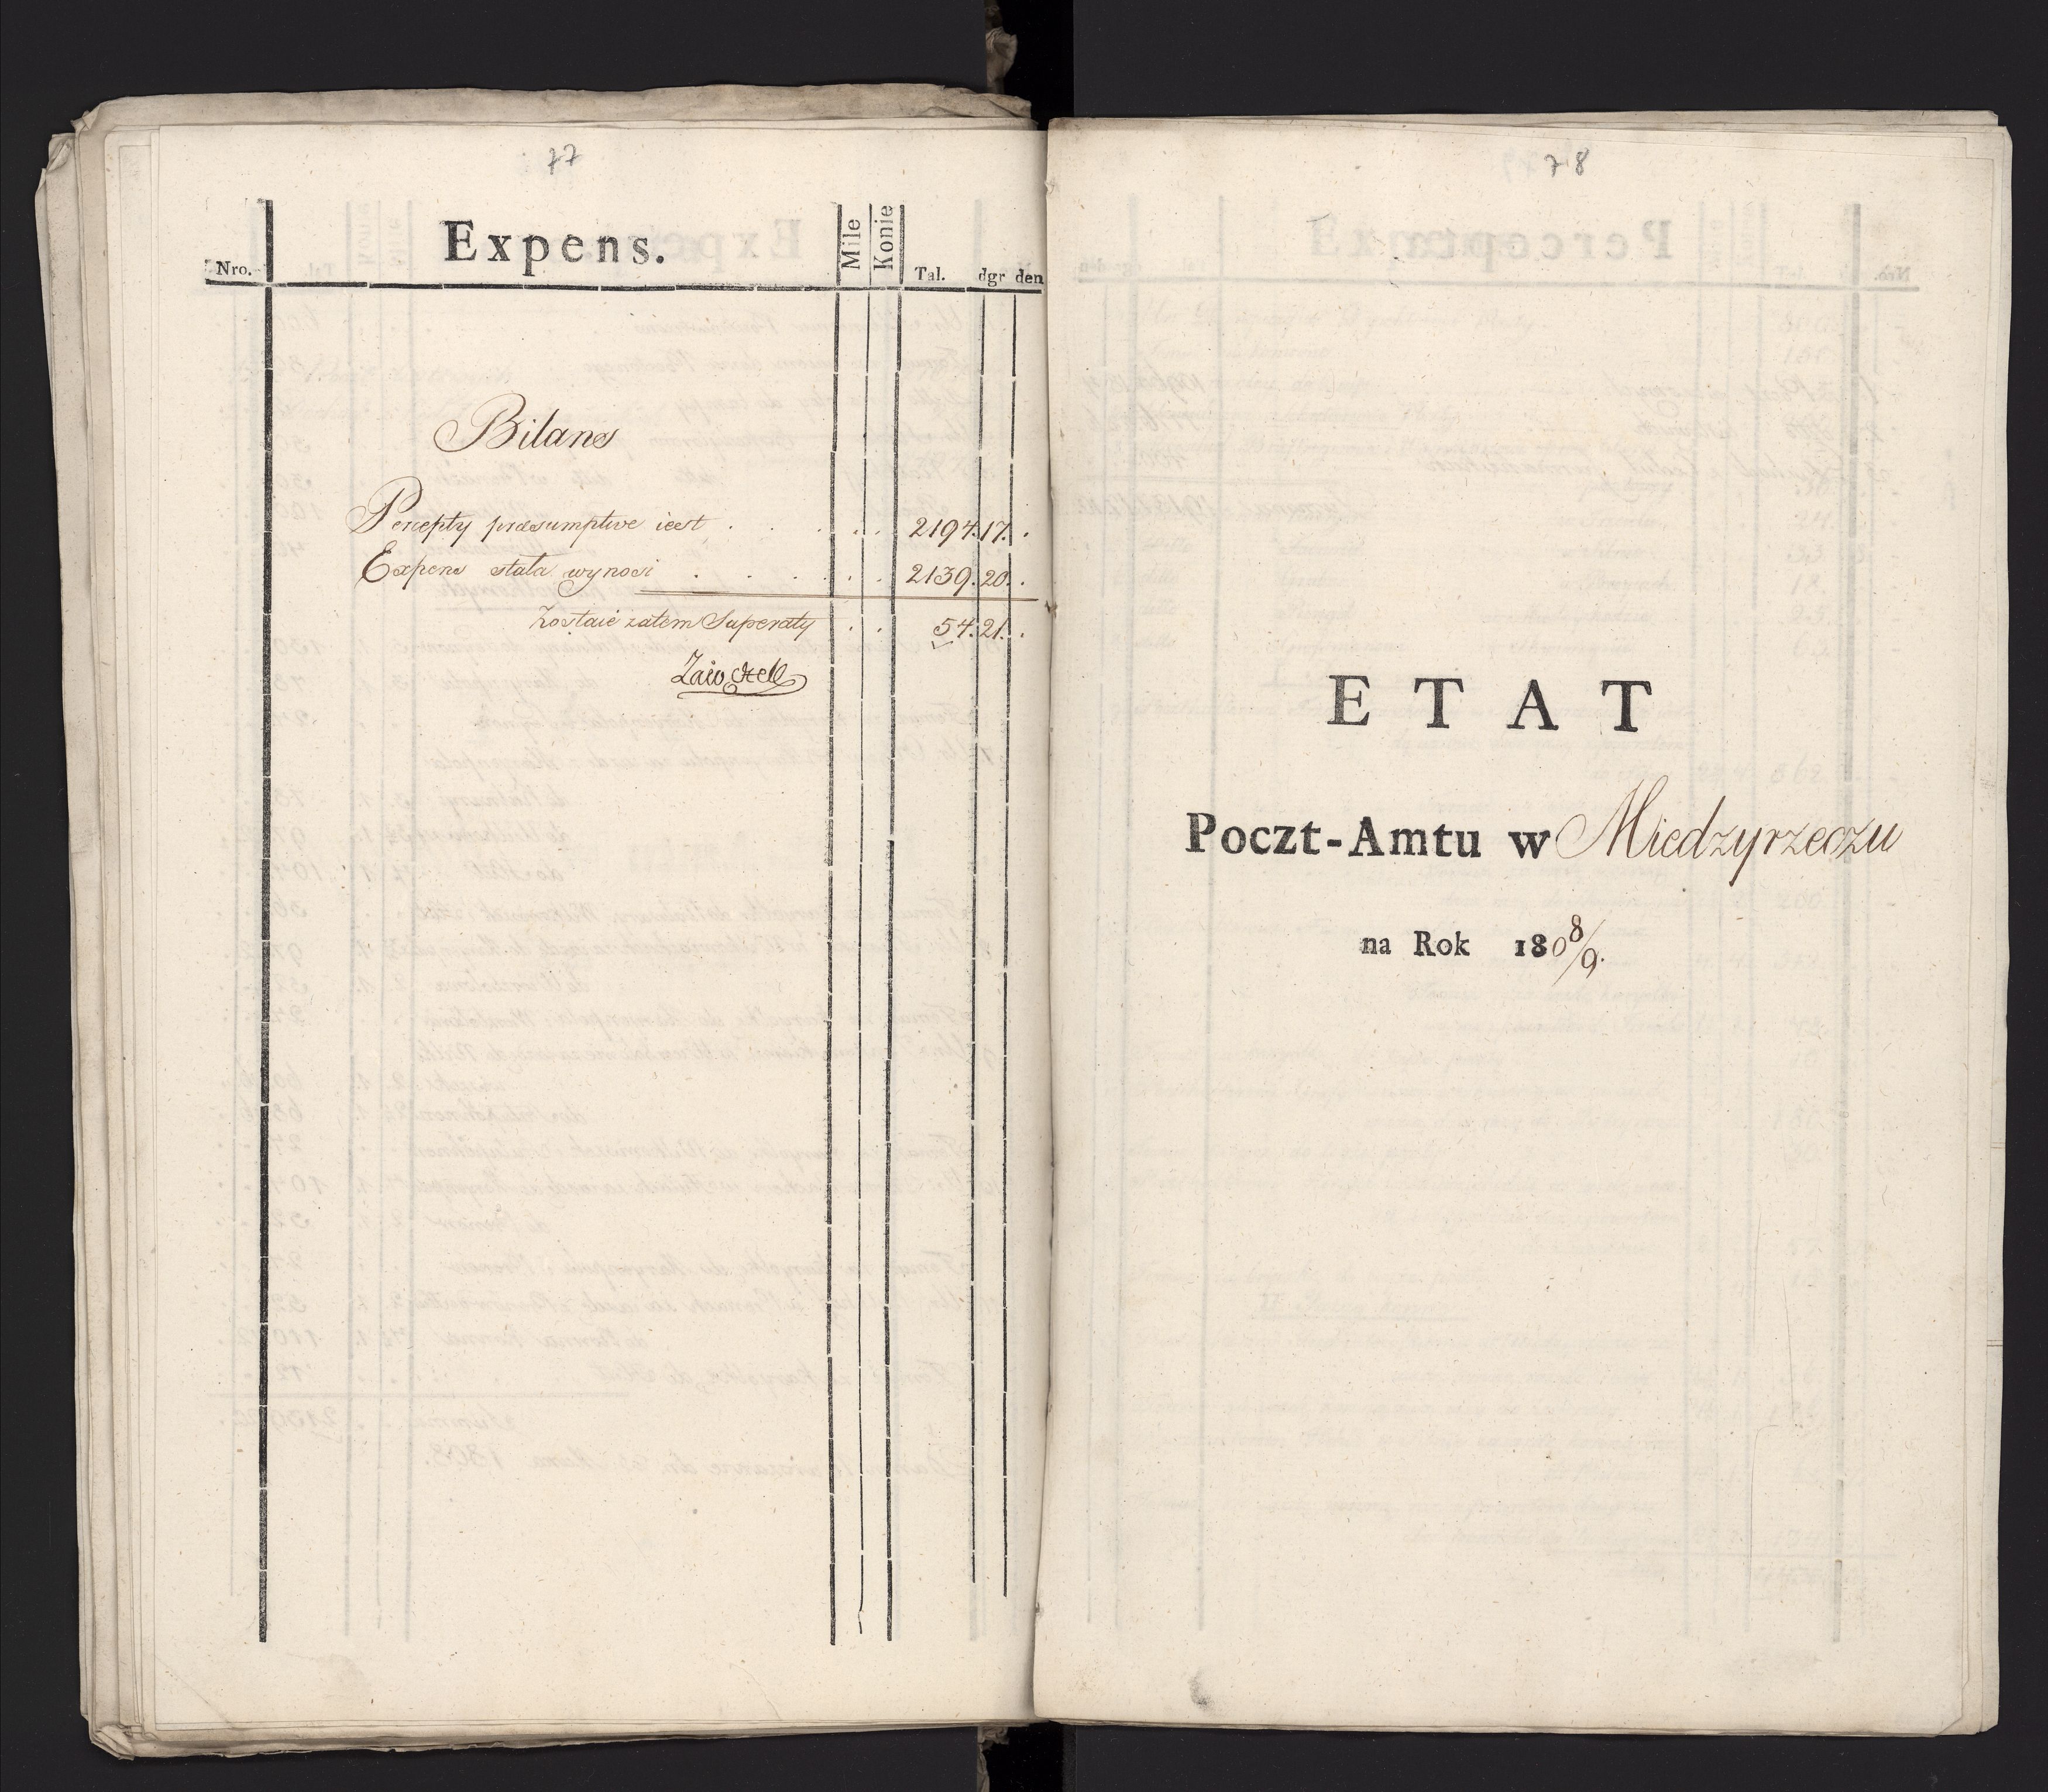 77
Nro. Expens. Mile Konie Tal. dgr den
Bilans
Percepty præsumptive iest . . . . . . 2194. 17. .
Expens stała wynosi . . . . . . 2139. 20. .
Zostaie zatem Superaty . . 54. 21. .
78
ETAT
Poczt-Amtu w Miedzyrzeczu
na Rok 1808/9.